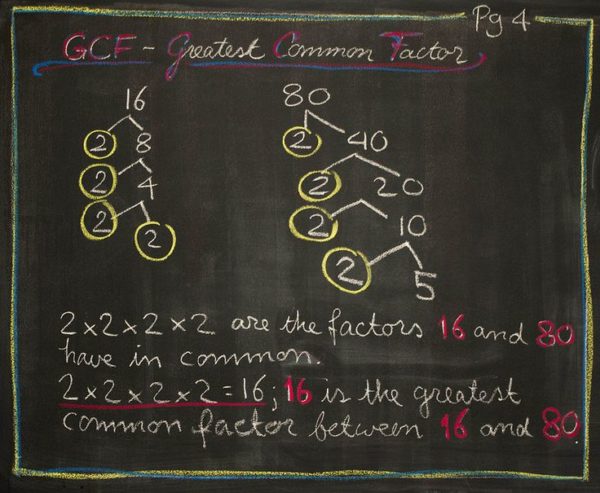 Pg 4
GCF - Greatest Common Factor
16 80
2 8 2 40
2 4 2 20
2 2 2 10
2 5
2 x 2 x 2 x 2 are the factors 16 and 80
have in common.
2 x 2 x 2 x 2 = 16; 16 is the greatest
common factor between 16 and 80